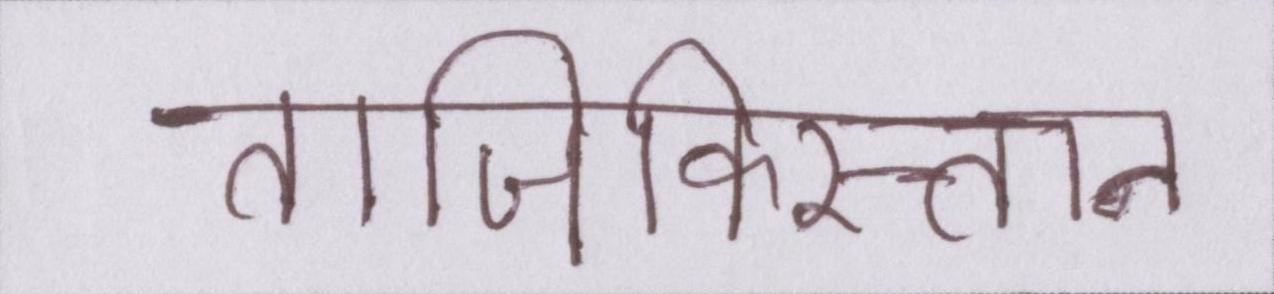 ताजिकिस्तान